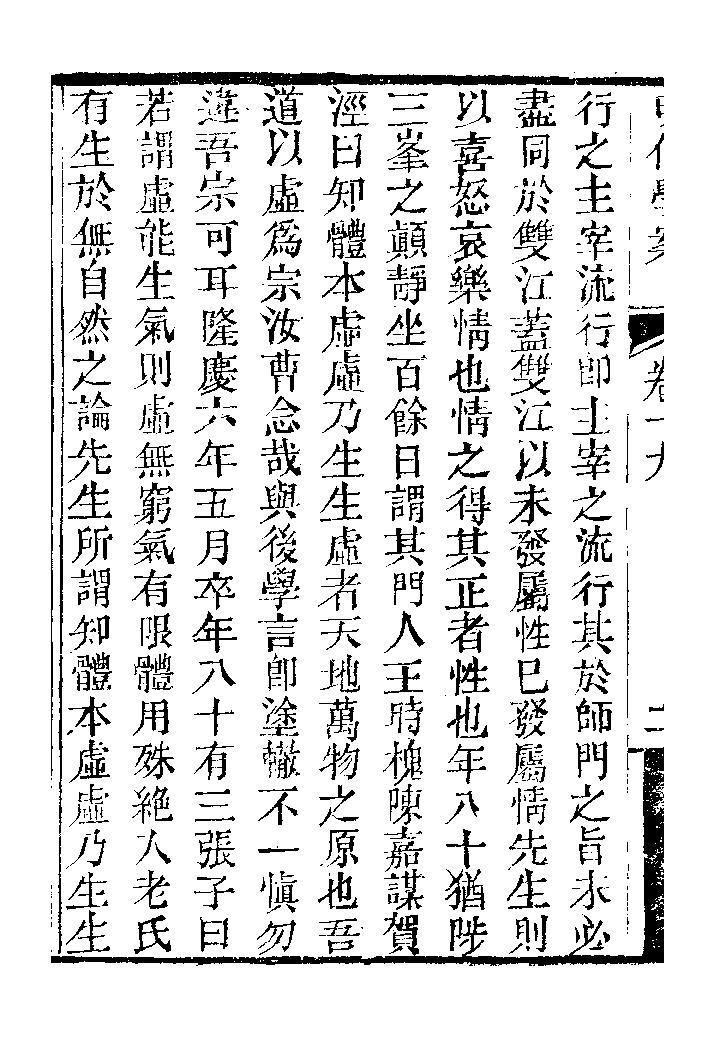 明儒學案 卷十九 二
行之主宰流行即主宰之流行其於師門之旨未必
盡同於雙江蓋雙江以未發屬性已發屬情先生則
以喜怒哀樂情也情之得其正者性也年八十猶陟
三峯之巔靜坐百餘日謂其門人王時槐陳嘉謨賀
涇曰知體本虛虛乃生生虛者天地萬物之原也吾
道以虛爲宗汝曹念哉與後學言卽塗轍不一慎勿
違吾宗可耳隆慶六年五月卒年八十有三張子曰
若謂虛能生氣則虛無窮氣有限體用殊絕入老氏
有生於無自然之論先生所謂知體本虛虛乃生生